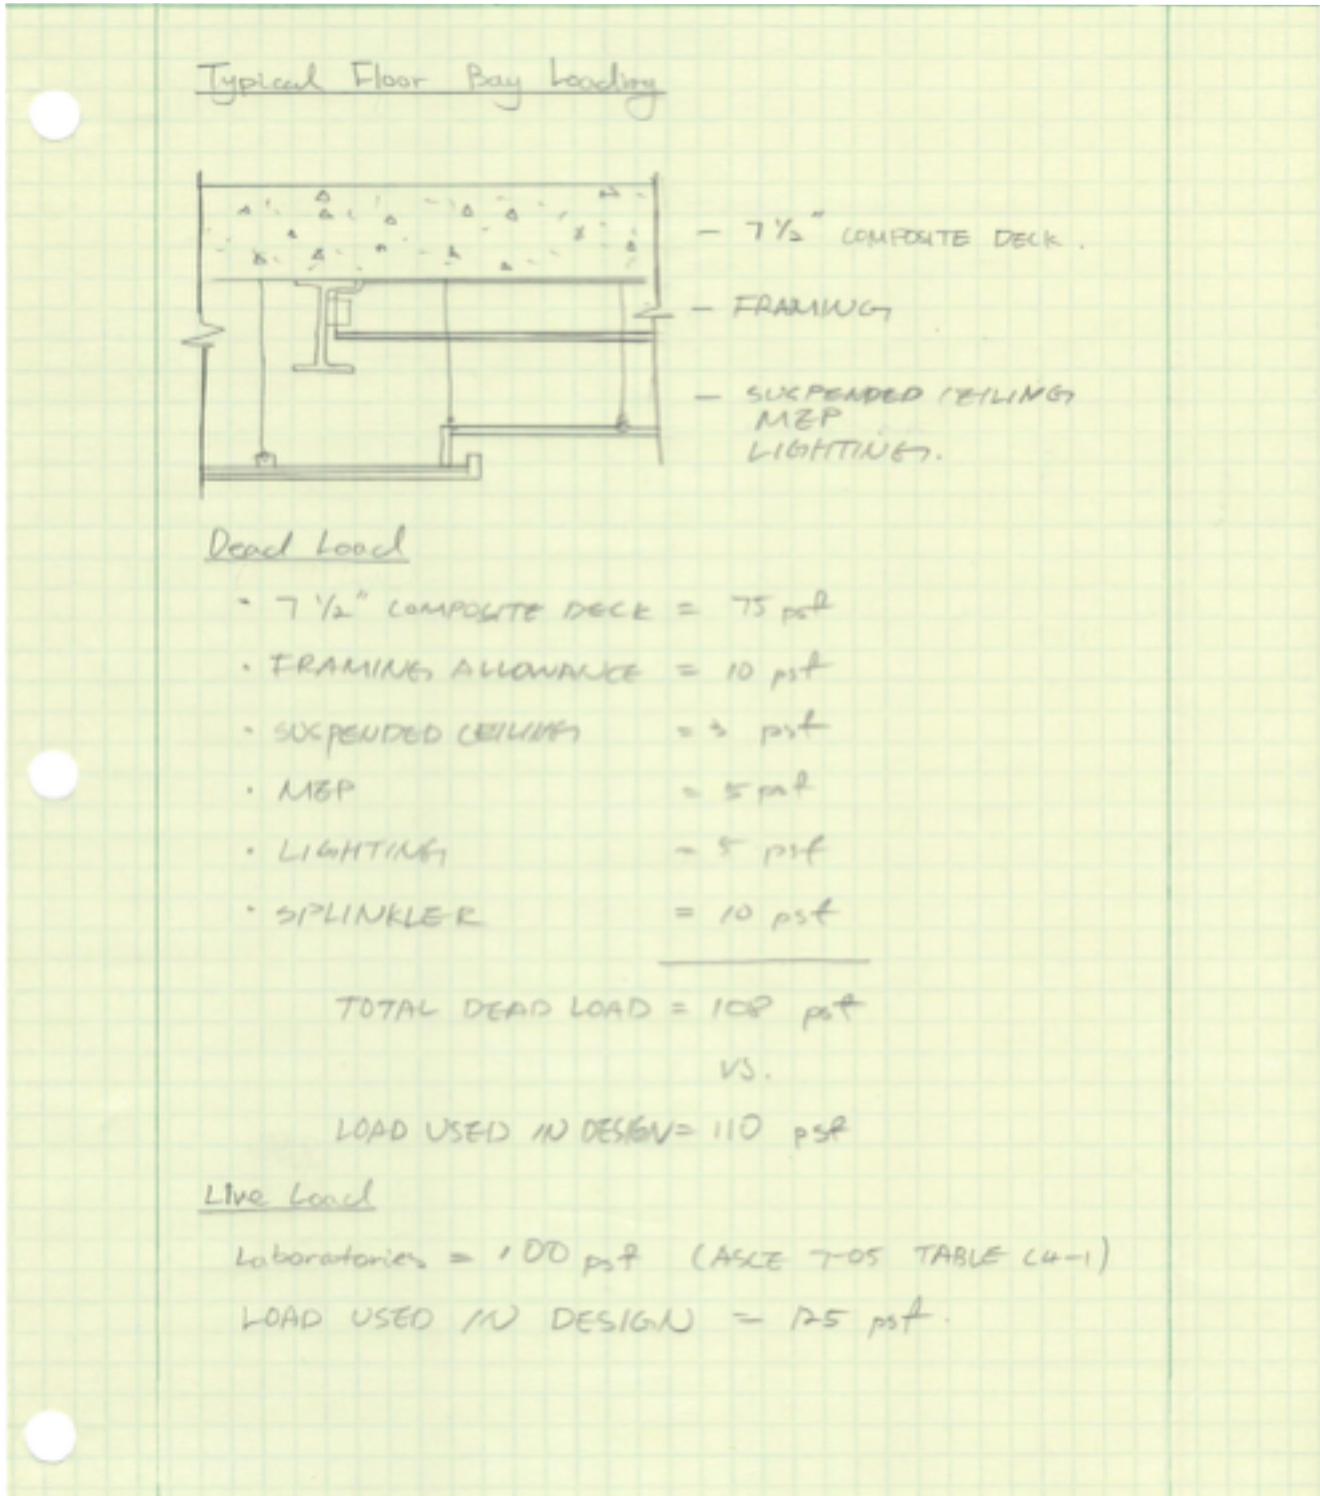 Typical Floor Bay Loading
- 7 1/2" COMPOSITE DECK.
- FRAMING
- SUSPENDED CEILING
MEP
LIGHTING.
Dead Load
· 7 1/2" COMPOSITE DECK = 75 psf
· FRAMING ALLOWANCE = 10 psf
· SUSPENDED CEILING = 3 psf
· MEP = 5 psf
· LIGHTING = 5 psf
· SPLINKLER = 10 psf
TOTAL DEAD LOAD = 108 psf
VS.
LOAD USED IN DESIGN = 110 psf
Live Load
Laboratories = 100 psf (ASCE 7-05 TABLE C4-1)
LOAD USED IN DESIGN = 125 psf.